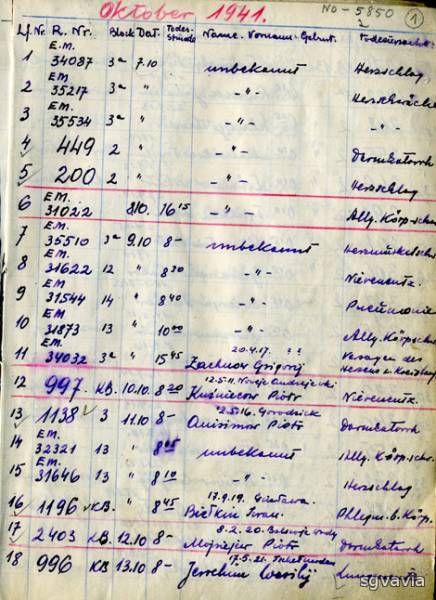 Oktober 1941. NO-5850 1
2
Lf. Nr. R. Nr. Block Dat. Todes-stunde Name. Vorname. Geburt. Todesursache
E.M.
1 34087 3a 7.10 unbekannt Herzschlag
EM
2 35217 3a " -"- Herzschwäche
EM
3 35534 3a " -"- -"-
4 449 2 " -"- Darmkatarrh
5 200 2 " -"- Herzschlag
E.M.
6 31022 8.10. 16 15 -"- Allg. Körp.
E.M.
7 35510 3a 9.10 8- unbekannt
E.M.
8 31622 12 " 8 30 -"- Nierenentz.
E.M.
9 31544 14 " 8 40 -"- Pneumonie
E.M.
10 31873 13 " 10 00 -"- Allg. Körpschw
E.M. 20.4.17. ? ? Versagen des
11 34032 3a " 15 45 Zachnow Grigorj Herzens u. Kreislauf
12.5.11.
12 997 KB. 10.10. 8 20 Kusniecow Piotr Nierenentz.
2.5.16.
13 1138 3 11.10 8- Anisimow Piotr Darmkatarrh
E.M.
14 32321 13 " 8 05 unbekannt Allg. Körp.schw.
E.M.
15 31646 13 " 8 10 -"- Herzschlag
17.9.19.
16 1196 KB. " 8 45 Bielkin Iwan Phlegm. b. Körp.
8.2.20.
17 2403 KB. 12.10 8- Piotr Darmkatarrh
17.5.21.
18 996 KB 13.10 8- Wasilij
sgvavia